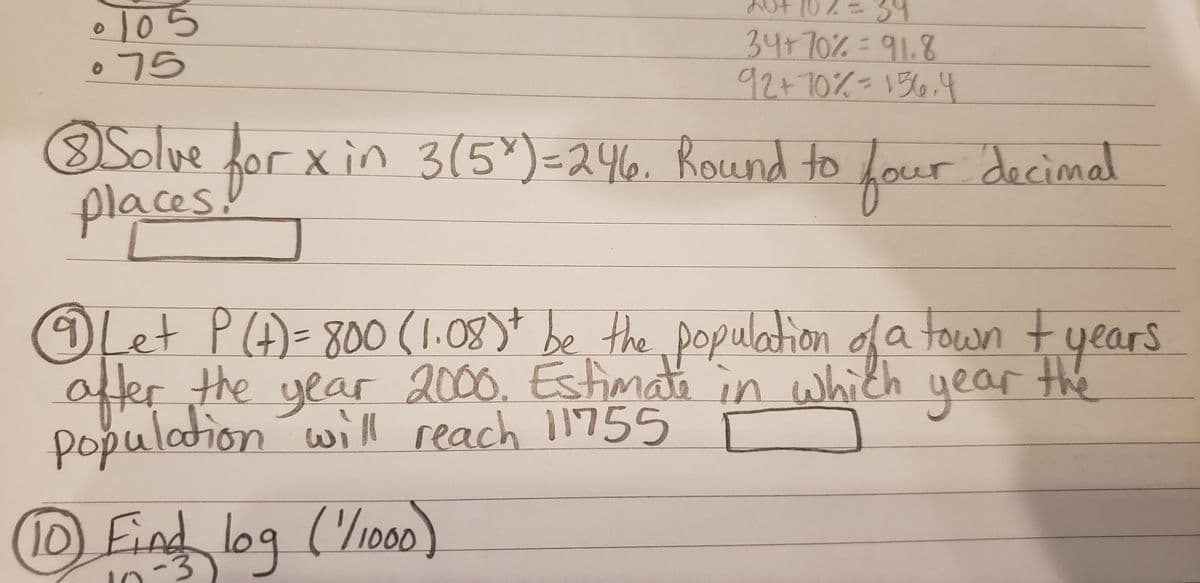 • 105
• 75
20+70%=34
34+70%=91.8
92+70%=156.4
⑧ Solve for x in 3(5ˣ)=246. Round to four decimal
places.
⑨ Let P(t)=800(1.08)ᵗ be the population of a town t years
after the year 2000. Estimate in which year the
population will reach 11755
⑩ Find log (1/1000)
10⁻³)